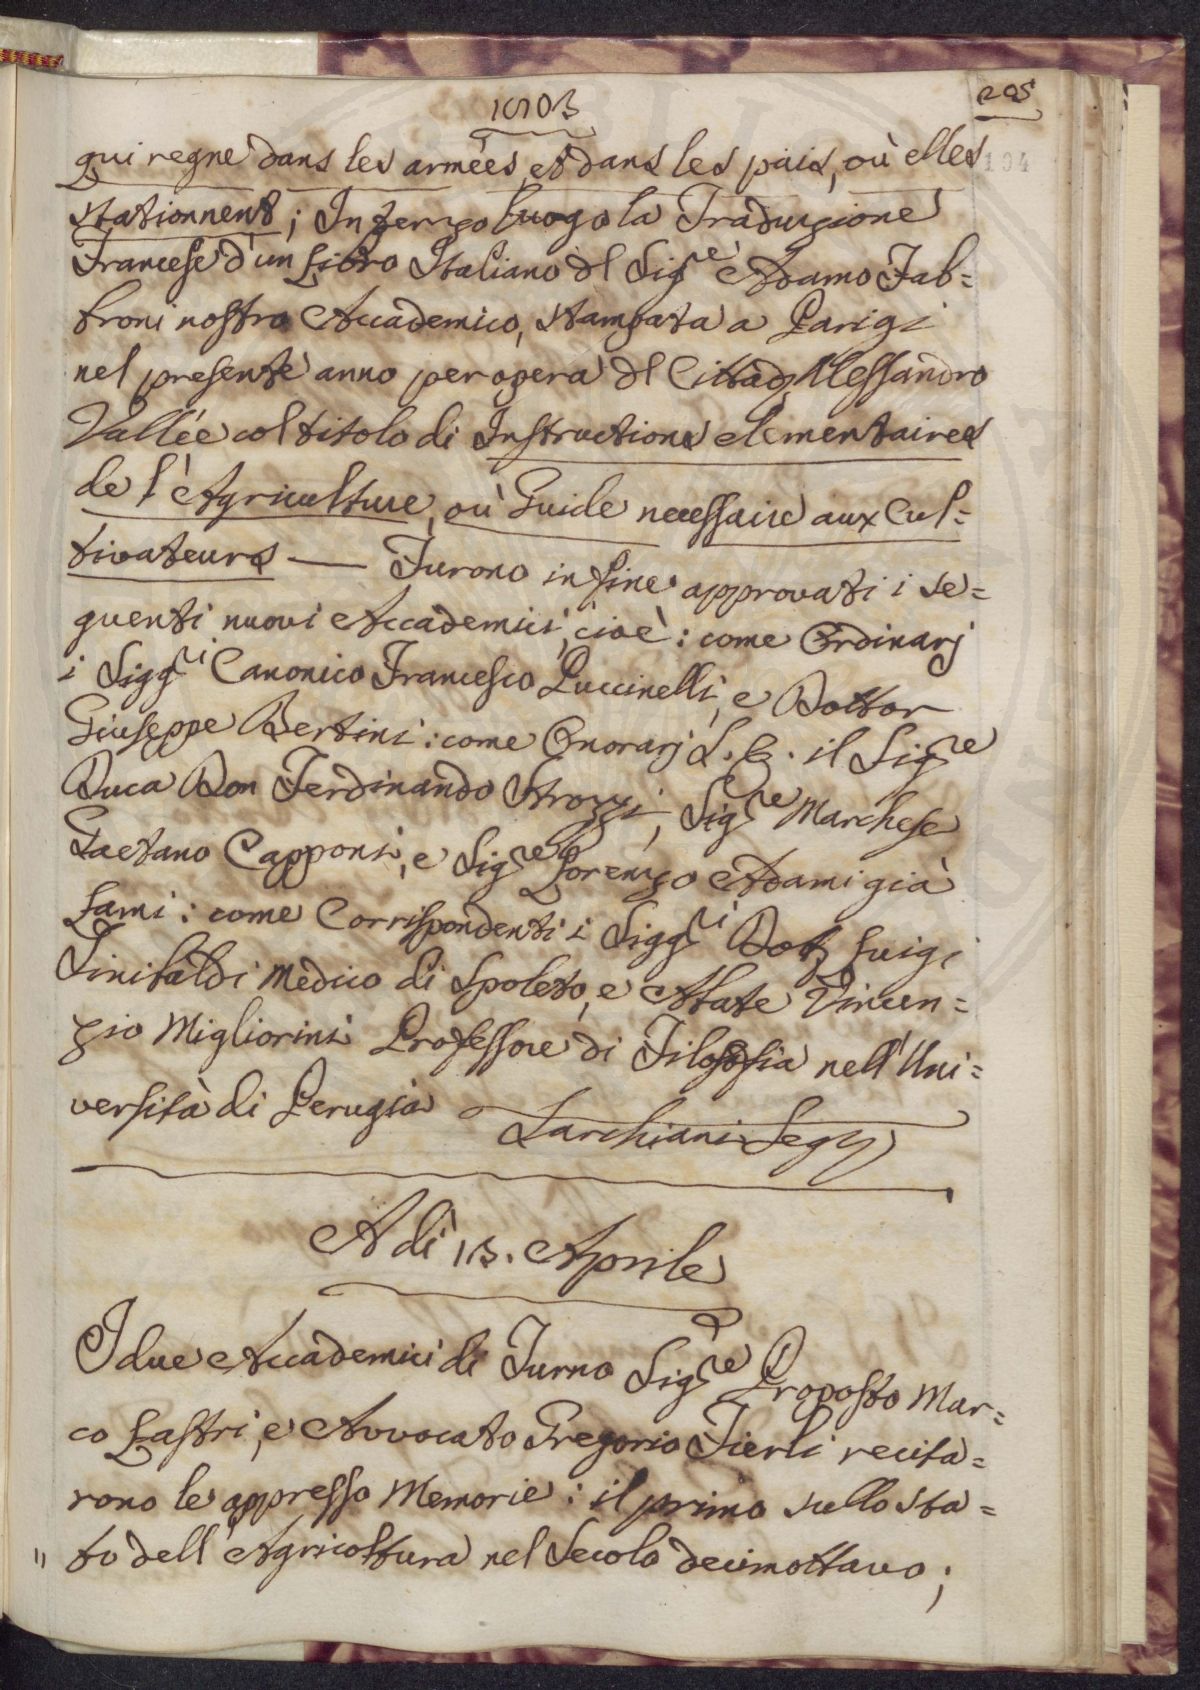 1803
205
194
qui regne dans les armées et dans les païs, où elles
stationnent; In terzo luogo la Traduzione
Francese d'un Libro Italiano del Sig.re Adamo Fab=
broni nostro Accademico, stampata a Parigi
nel presente anno per opera del Cittad. Alessandro
Vallée col titolo di Instructions elementaires
de l'Agriculture, où Guide necessaire aux Cul=
tivateurs — Furono in fine approvati i se=
guenti nuovi Accademici, cioè: come Ordinarj
i Sigg.ri Canonico Francesco Puccinelli, e Dottor
Giuseppe Bertini: come Onorarj S. E. il Sig.re
Duca Don Ferdinando Strozzi, Sig.re Marchese
Gaetano Capponi, e Sig.re Lorenzo Adami già
Lami: come Corrispondenti i Sigg.ri Dott. Luigi
Sinibaldi Medico di Spoleto, e Abate Vincen=
zio Migliorini Professore di Filosofia nell'Uni=
versità di Perugia
Sarchiani Seg.
A dì 13. Aprile
I due Accademici di Turno Sig.re Proposto Mar=
co Lastri, e Avvocato Gregorio Fierli recita=
rono le appresso Memorie: il primo sullo sta=
" to dell'Agricoltura nel Secolo decimottavo;